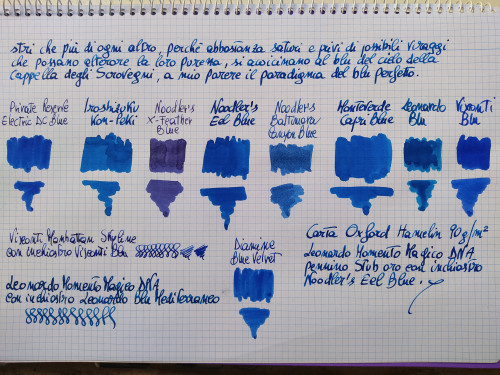 stri che più di ogni altro, perché abbastanza saturi e privi di possibili viraggi
che possano alterare la loro purezza, si avvicinano al blu del cielo della
Cappella degli Scrovegni, a mio parere il paradigma del blu perfetto.
Private Reserve
Electric DC Blue
Iroshizuku
Kon-Peki
Noodler's
X-Feather
Blue
Noodler's
Eel Blue
Noodler's
Baltimore
Canyon Blue
Monteverde
Capri Blue
Leonardo
Blu
Visconti
Blu
Visconti Manhattan Skyline
con inchiostro Visconti Blu
Leonardo Momento Magico DNA
con inchiostro Leonardo Blu Mediterraneo
Diamine
Blue Velvet
Carta Oxford Hamelin 90 g/m²
Leonardo Momento Magico DNA
pennino Stub oro con inchiostro
Noodler's Eel Blue.